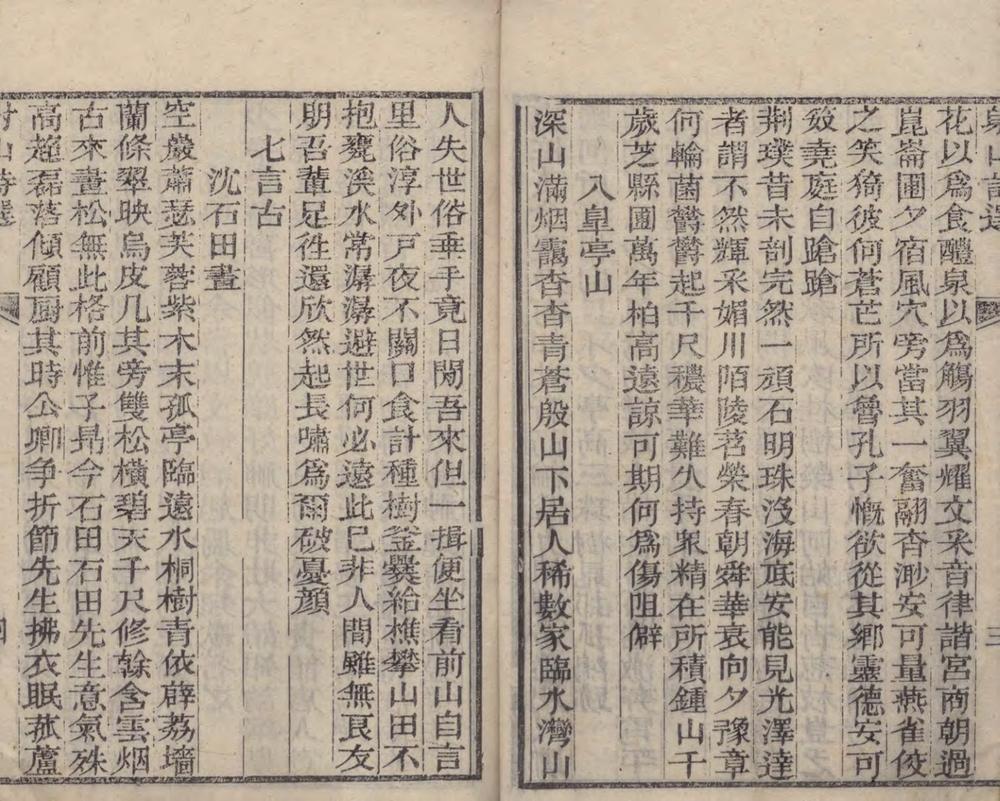 花以爲食醴泉以爲觴羽翼耀文采音律諧宮商朝過
崑崙圃夕宿風穴旁當其一奮翮杳渺安可量燕雀佼
之笑猗彼何蒼芒所以魯孔子慨欲從其鄉靈德安可
斂堯庭自蹌蹌
荆璞昔未剖完然一頑石明珠沒海底安能見光澤達
者謂不然輝采媚川陌陵苕榮春朝舜華哀向夕豫章
何輪菌鬱鬱起千尺穠華難久持衆精在所積鍾山千
歲芝縣圃萬年柏高遠諒可期何爲傷阻僻
入皐亭山
深山滿烟靄杳杳青蒼殷山下居人稀數家臨水灣山
人失世俗垂手竟日閒吾來但一揖便坐看前山自言
里俗淳外戸夜不關口食計種樹釜爨給樵攀山田不
抱甕溪水常潺潺避世何必遠此已非人間雖無良友
朋吾輩足往還欣然起長嘯爲爾破憂顏
七言古
沈石田畫
空巖蕭瑟芙蓉紫木末孤亭臨遠水桐樹青依薜荔墻
蘭條翠映烏皮几其旁雙松橫碧天千尺修榦含雲烟
古來畫松無此格前惟子昻今石田石田先生意氣殊
高趣磊落傾顧厨其時公卿争折節先生拂衣眠菰蘆